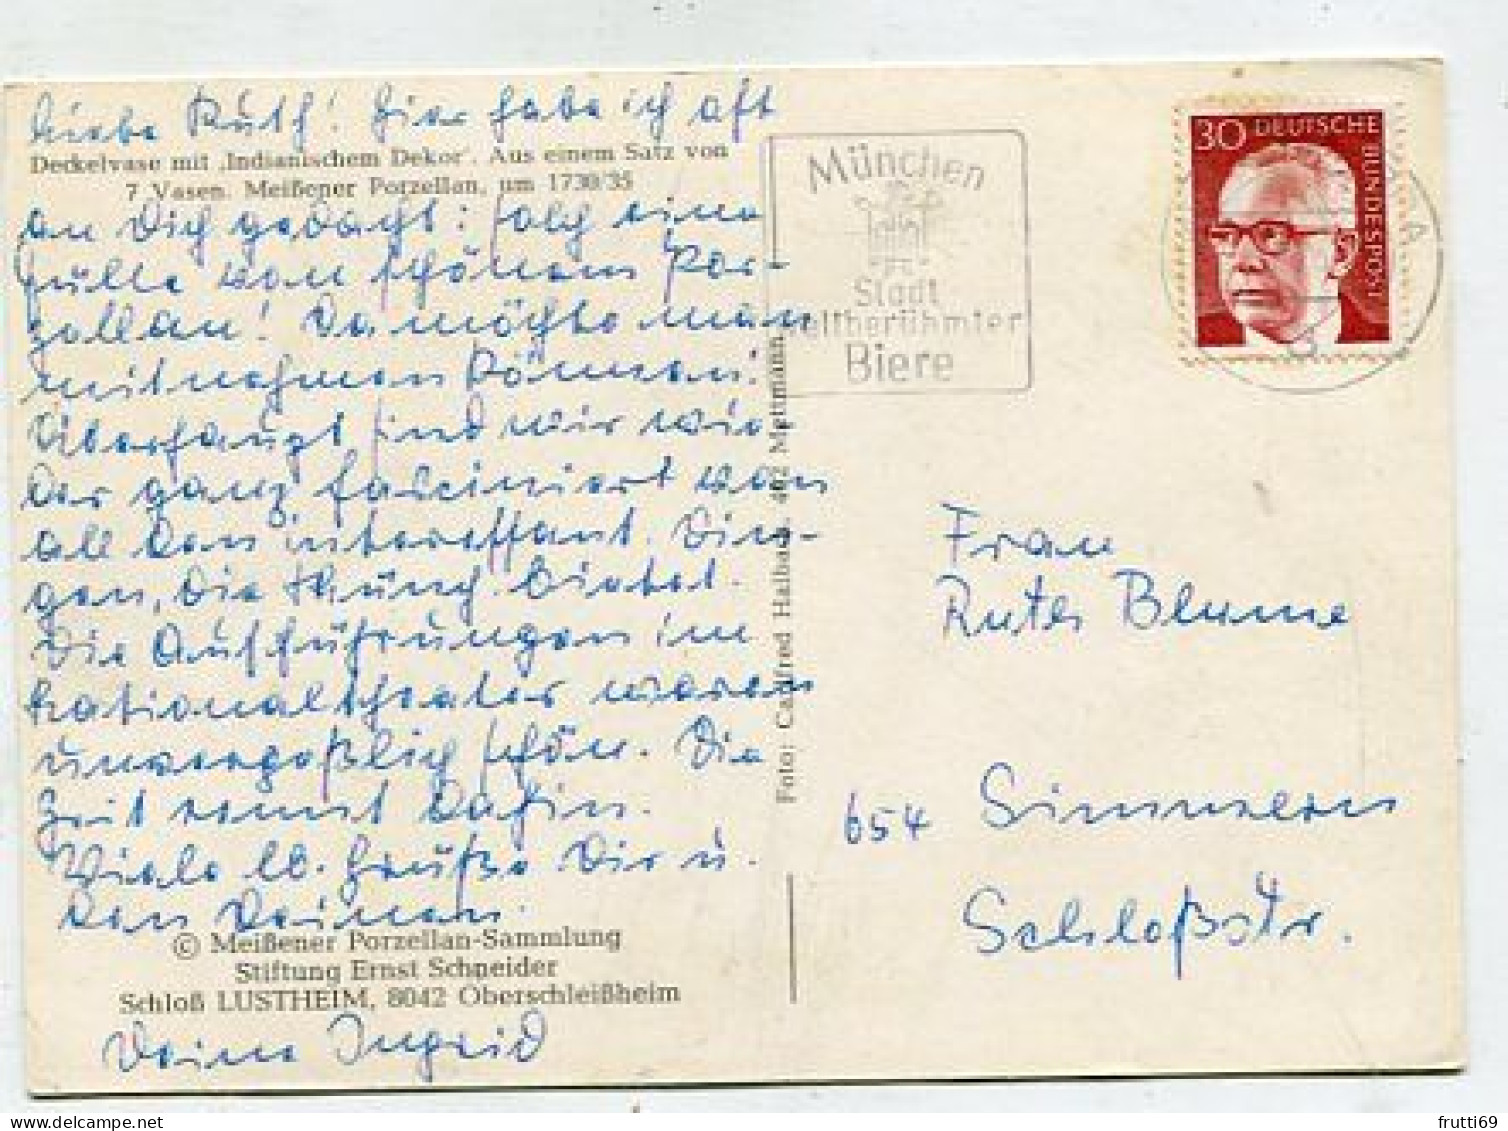 Liebe Ruth! Hier habe ich oft
Deckelvase mit ‚Indianischem Dekor'. Aus einem Satz von
7 Vasen. Meißener Porzellan, um 1730/35
an Dich gedacht: solch eine
Fülle von schönem Por-
zellan! Da möchte man
mitnehmen können!
Überhaupt sind wir wie-
der ganz fasciniert von
all den interessant. Din-
gen, die Münch. bietet.
Die Aufführungen im
Nationaltheater waren
unvergeßlich schön. Die
Zeit rennt dahin.
Viele lb. Grüße Dir u.
den Deinen.
© Meißener Porzellan-Sammlung
Stiftung Ernst Schneider
Schloß LUSTHEIM, 8042 Oberschleißheim
Deine Ingrid
Foto: Carlfred Halbach, 402 Mettmann
München
Stadt
weltberühmter
Biere
30 DEUTSCHE
BUNDESPOST
Frau
Ruth Blume
654 Simmern
Schloßstr.
frutti69